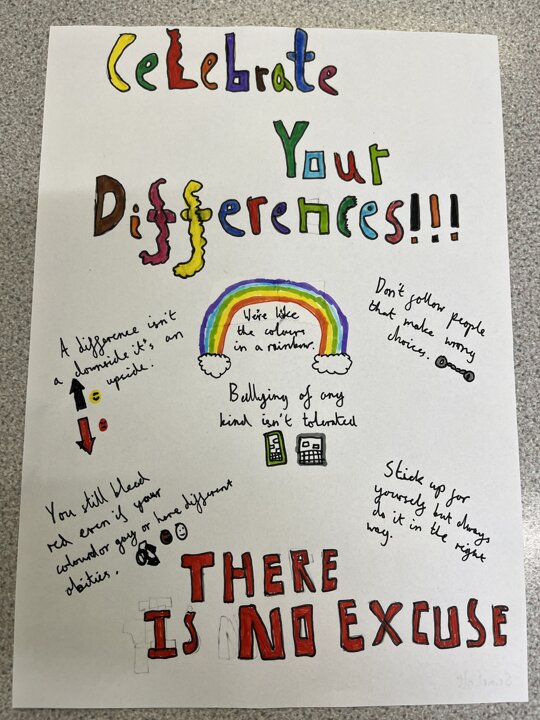 Celebrate
Your
Differences!!!
We're like
the colours
in a rainbow.
Don't follow people
that make wrong
choices.
A difference isn't
a downside it's an
upside.
Bullying of any
kind isn't tolerated
You still bleed
red even if your
coloured or gay or have different
abities.
Stick up for
yourself but always
do it in the right
way.
THERE
IS NO EXCUSE